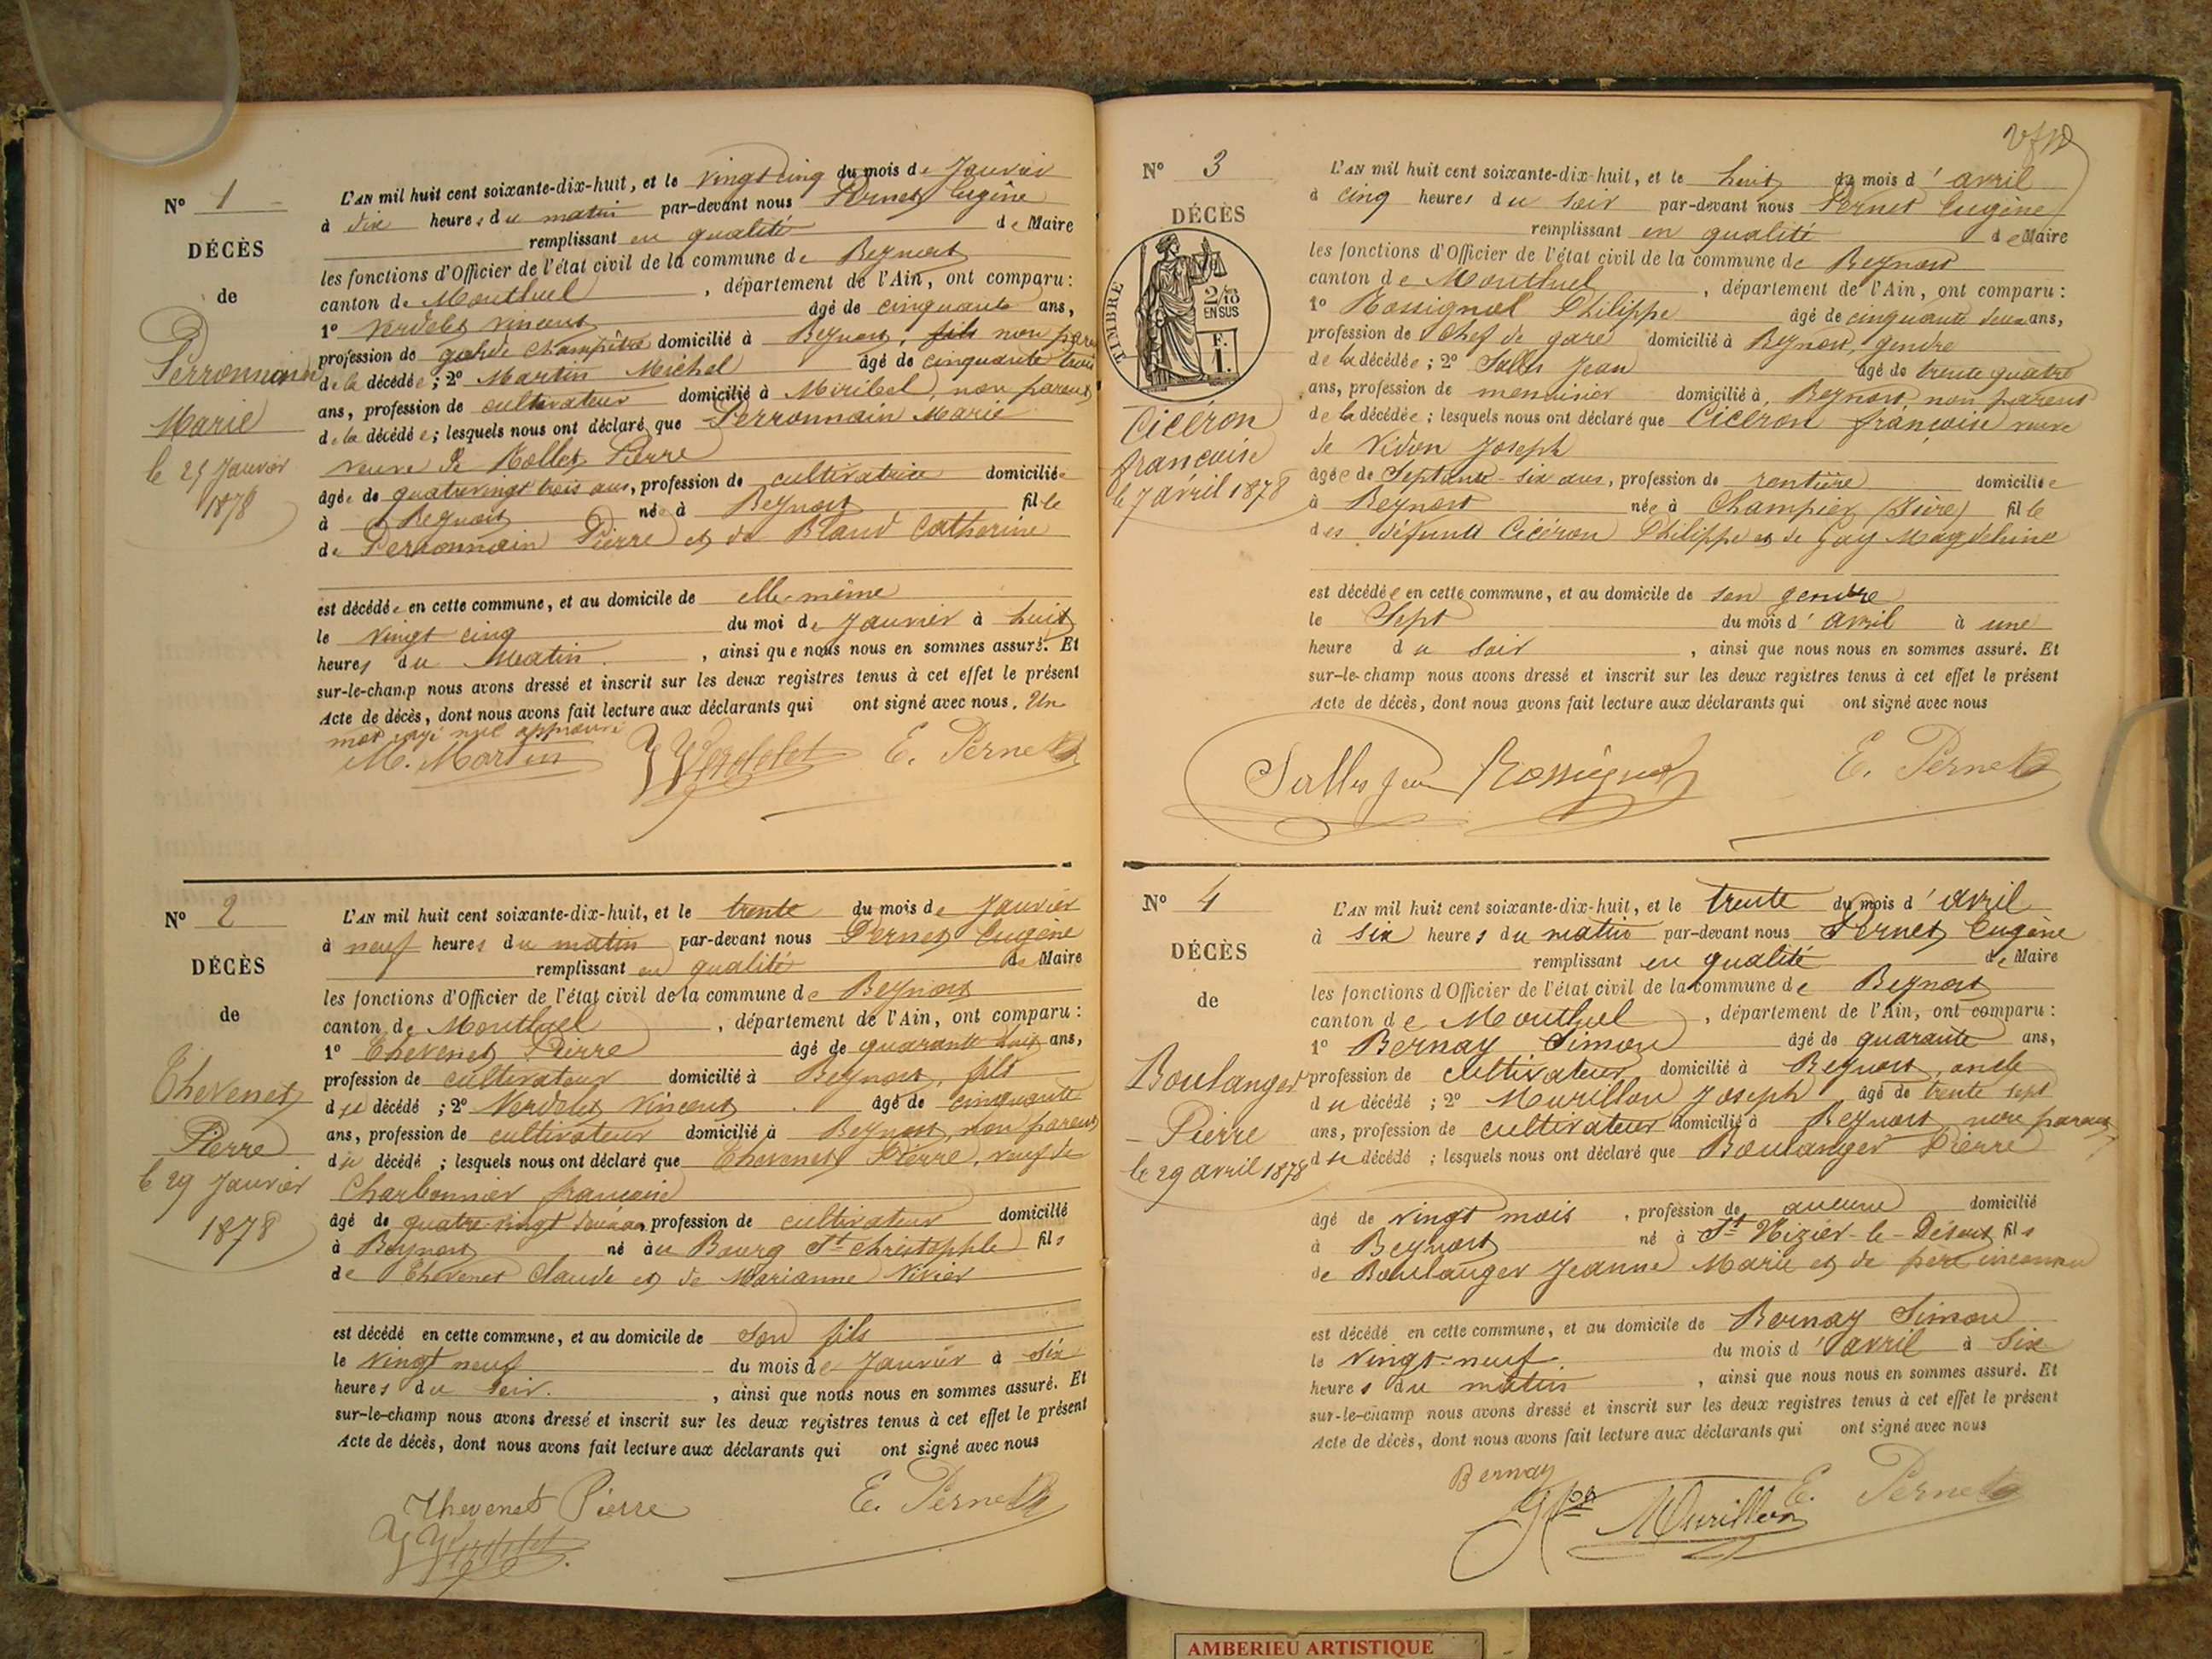 N° 1
DÉCÈS
de
Perronnain
Marie
le 25 Janvier
1878
L'AN mil huit cent soixante-dix-huit, et le vingt cinq du mois de Janvier
à dix heures du matin par-devant nous Pernet Eugène
remplissant en qualité de Maire
les fonctions d'Officier de l'état civil de la commune de Beynost
canton de Montluel, département de l'Ain, ont comparu :
1° Verdelet Vincent âgé de cinquante ans,
profession de garde champêtre domicilié à Beynost, fils non parent
de la décédée ; 2° Martin Michel âgé de cinquante trois
ans, profession de cultivateur domicilié à Miribel, non parent
de la décédée ; lesquels nous ont déclaré que Perronnain Marie
veuve de Rollet Pierre
âgée de quatrevingt trois ans, profession de cultivatrice domiciliée
à Beynost née à Beynost fille
de Perronnain Pierre et de Bland Catherine
est décédée en cette commune, et au domicile de elle-même
le vingt cinq du moi de Janvier à huit
heures du matin, ainsi que nous nous en sommes assuré. Et
sur-le-champ nous avons dressé et inscrit sur les deux registres tenus à cet effet le présent
Acte de décès, dont nous avons fait lecture aux déclarants qui ont signé avec nous. Un
mot rayé nul approuvé
M. Martin Verdelet E. Pernet
N° 2
DÉCÈS
de
Thevenet
Pierre
le 29 Janvier
1878
L'AN mil huit cent soixante-dix-huit, et le trente du mois de Janvier
à neuf heures du matin par-devant nous Pernet Eugène
remplissant en qualité de Maire
les fonctions d'Officier de l'état civil de la commune de Beynost
canton de Montluel, département de l'Ain, ont comparu :
1° Thevenet Pierre âgé de quarante huit ans,
profession de cultivateur domicilié à Beynost, fils
du décédé ; 2° Verdelet Vincent âgé de cinquante
ans, profession de cultivateur domicilié à Beynost, non parent
du décédé ; lesquels nous ont déclaré que Thevenet Pierre, veuf de
Charbonnier françoise
âgé de quatre-vingt ans, profession de cultivateur domicilié
à Beynost né au Bourg St Christophle fils
de Thevenet Claude et de Marianne Vivier
est décédé en cette commune, et au domicile de son fils
le vingt neuf du mois de Janvier à six
heures du soir., ainsi que nous nous en sommes assuré. Et
sur-le-champ nous avons dressé et inscrit sur les deux registres tenus à cet effet le présent
Acte de décès, dont nous avons fait lecture aux déclarants qui ont signé avec nous
Thevenet Pierre E. Pernet
Verdelet
N° 3
DÉCÈS
TIMBRE
2/10
EN SUS
F.
1.
Cicéron
françoise
le 7 avril 1878
L'AN mil huit cent soixante-dix-huit, et le huit du mois d'avril
à cinq heures du soir par-devant nous Pernet Eugène
remplissant en qualité de Maire
les fonctions d'Officier de l'état civil de la commune de Beynost
canton de Montluel, département de l'Ain, ont comparu :
1° Rossignol Philippe âgé de cinquante deux ans,
profession de Chef de gare domicilié à Beynost, gendre
de la décédée ; 2° Salles Jean âgé de trente quatre
ans, profession de menuisier domicilié à Beynost non parent
de la décédée ; lesquels nous ont déclaré que Cicéron françoise veuve
de Vidon Joseph
âgée de Septante-six ans, profession de rentière domiciliée
à Beynost née à Champier (Isère) fille
des défunts Cicéron Philippe et de Gay Magdeleine
est décédée en cette commune, et au domicile de son gendre
le Sept du mois d'avril à une
heure du soir, ainsi que nous nous en sommes assuré. Et
sur-le-champ nous avons dressé et inscrit sur les deux registres tenus à cet effet le présent
Acte de décès, dont nous avons fait lecture aux déclarants qui ont signé avec nous
Salles Jean Rossignol E. Pernet
N° 4
DÉCÈS
de
Boulanger
Pierre
le 29 avril 1878
L'AN mil huit cent soixante-dix-huit, et le trente du mois d'avril
à six heures du matin par-devant nous Pernet Eugène
remplissant en qualité de Maire
les fonctions d'Officier de l'état civil de la commune de Beynost
canton de Montluel, département de l'Ain, ont comparu :
1° Bernay Simon âgé de quarante ans,
profession de cultivateur domicilié à Beynost, oncle
du décédé ; 2° Murillon Joseph âgé de trente sept
ans, profession de cultivateur domicilié à Beynost non parent
du décédé ; lesquels nous ont déclaré que Boulanger Pierre
âgé de vingt mois, profession de aucune domicilié
à Beynost né à St Nizier-le-Désert fils
de Boulanger Jeanne Marie et de père inconnu
est décédé en cette commune, et au domicile de Bernay Simon
le vingt-neuf. du mois d'avril à six
heures du matin, ainsi que nous nous en sommes assuré. Et
sur-le-champ nous avons dressé et inscrit sur les deux registres tenus à cet effet le présent
Acte de décès, dont nous avons fait lecture aux déclarants qui ont signé avec nous
Bernay
Murillon E. Pernet
AMBERIEU ARTISTIQUE